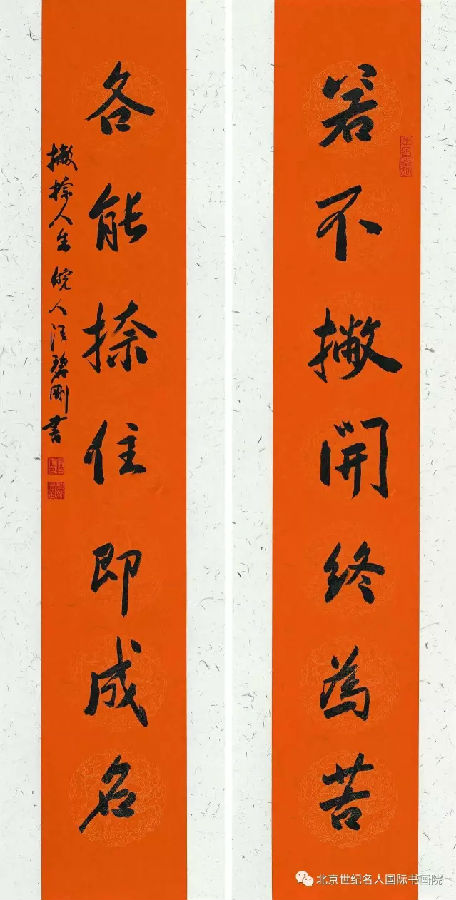 若不撇開終為苦
各能捺住即成名
撇捺人生 皖人汪碧刚書
北京世纪名人国际书画院